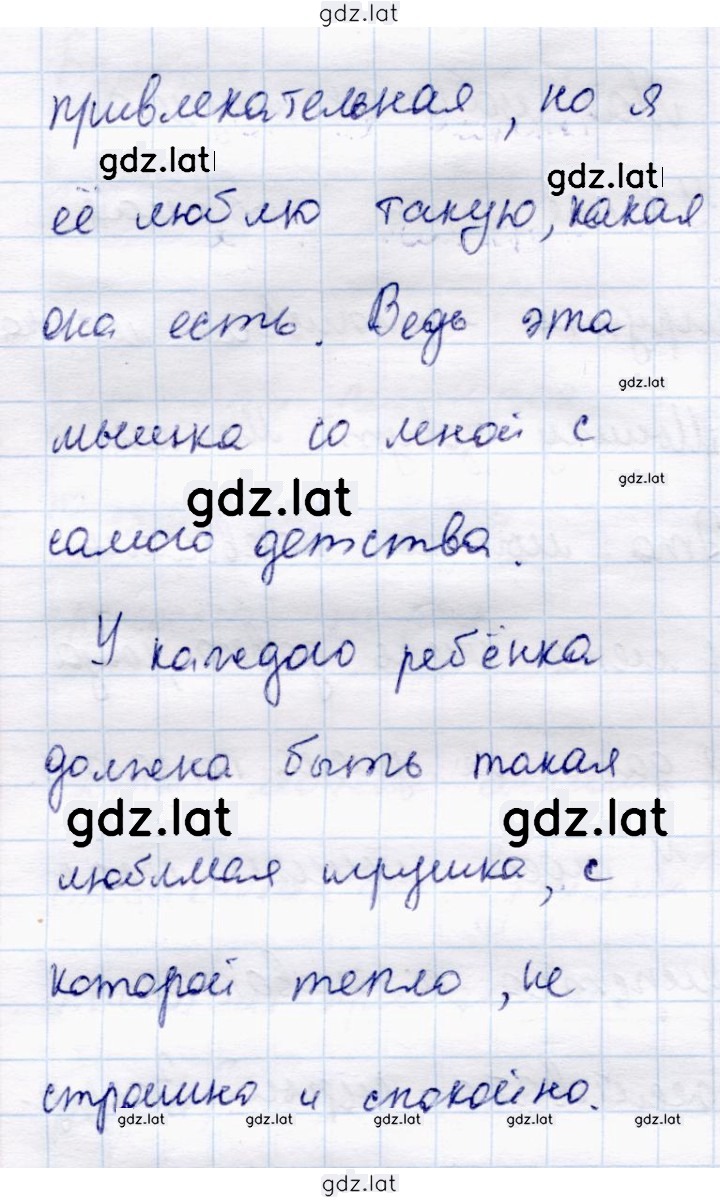 gdz.lat
привлекательная, но я
gdz.lat
gdz.lat
её люблю такую, какая
она есть. Ведь эта
gdz.lat
мышка со мной с
gdz.lat
gdz.lat
самого детства.
У каждого ребёнка
должна быть такая
gdz.lat gdz.lat
любимая игрушка, с
которой тепло, не
страшно и спокойно.
gdz.lat gdz.lat gdz.lat gdz.lat gdz.lat
gdz.lat